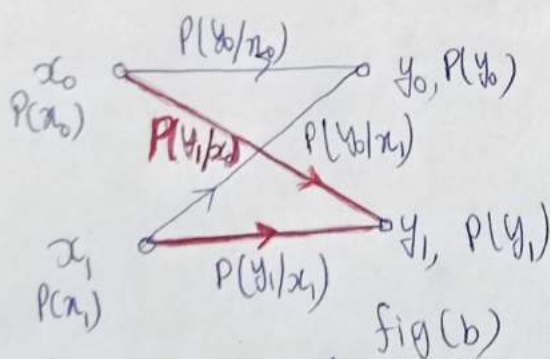 P(y₀/x₀)
x₀
P(x₀)
y₀, P(y₀)
P(y₁/x₀)
P(y₀/x₁)
x₁
P(x₁)
P(y₁/x₁)
y₁, P(y₁)
fig(b)